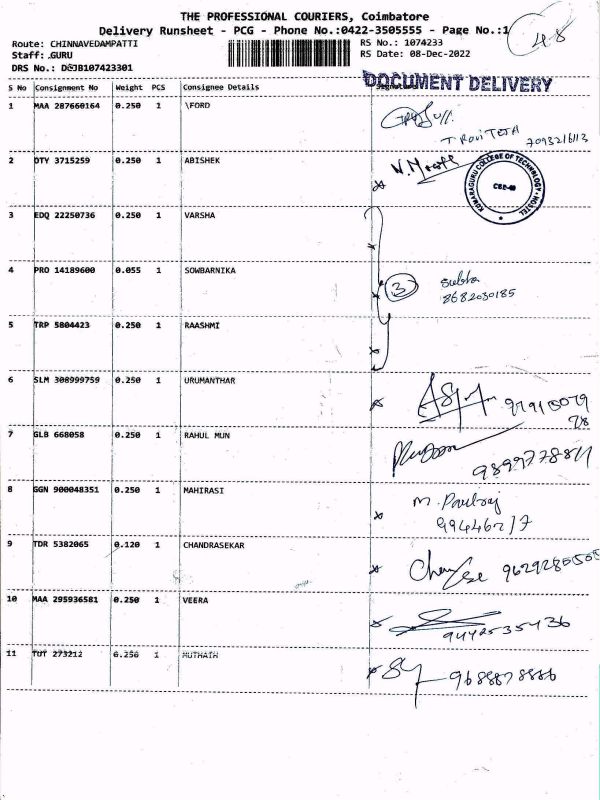 THE PROFESSIONAL COURIERS, Coimbatore
Delivery Runsheet - PCG - Phone No.:0422-3505555 - Page No.:1
48
Route: CHINNAVEDAMPATTI RS No.: 1074233
Staff: .GURU RS Date: 08-Dec-2022
DRS No.:
DOCUMENT DELIVERY
S No Consignment No Weight PCS Consignee Details
1 MAA 287660164 0.250 1 \FORD
7093216113
2 OTY 3715259 0.250 1 ABISHEK
KUMARAGURU COLLEGE OF TECHNOLOGY - HOSTEL
3 EDQ 22250736 0.250 1 VARSHA
4 PRO 14189600 0.055 1 SOWBARNIKA 3 Subha
8682030185
5 TRP 5804423 0.250 1 RAASHMI
6 SLM 308999759 0.250 1 URUMANTHAR
7 GLB 668058 0.250 1 RAHUL MUN
8 GGN 900048351 0.250 1 MAHIRASI M. Paulraj
9 TDR 5382065 0.120 1 CHANDRASEKAR
10 MAA 295936581 0.250 1 VEERA
9442535436
11 TUT 273212 0.250 1 MUTHAIH
9688878886